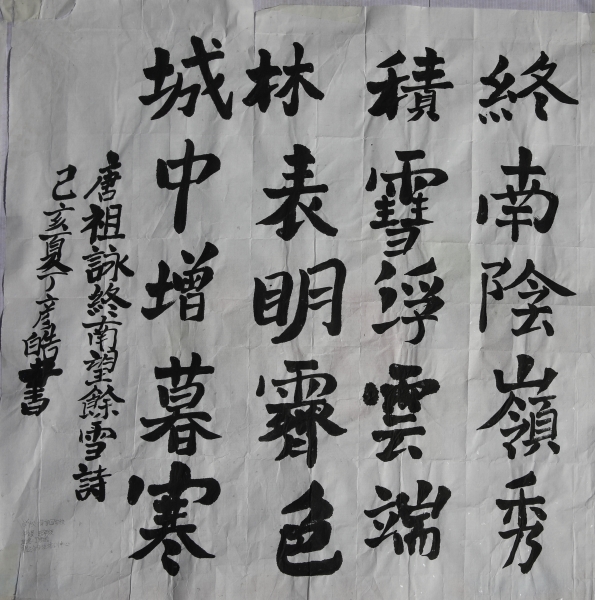 終南陰嶺秀
積雪浮雲端
林表明霽色
城中增暮寒
唐祖詠終南望餘雪詩
己亥夏丁彦皓書